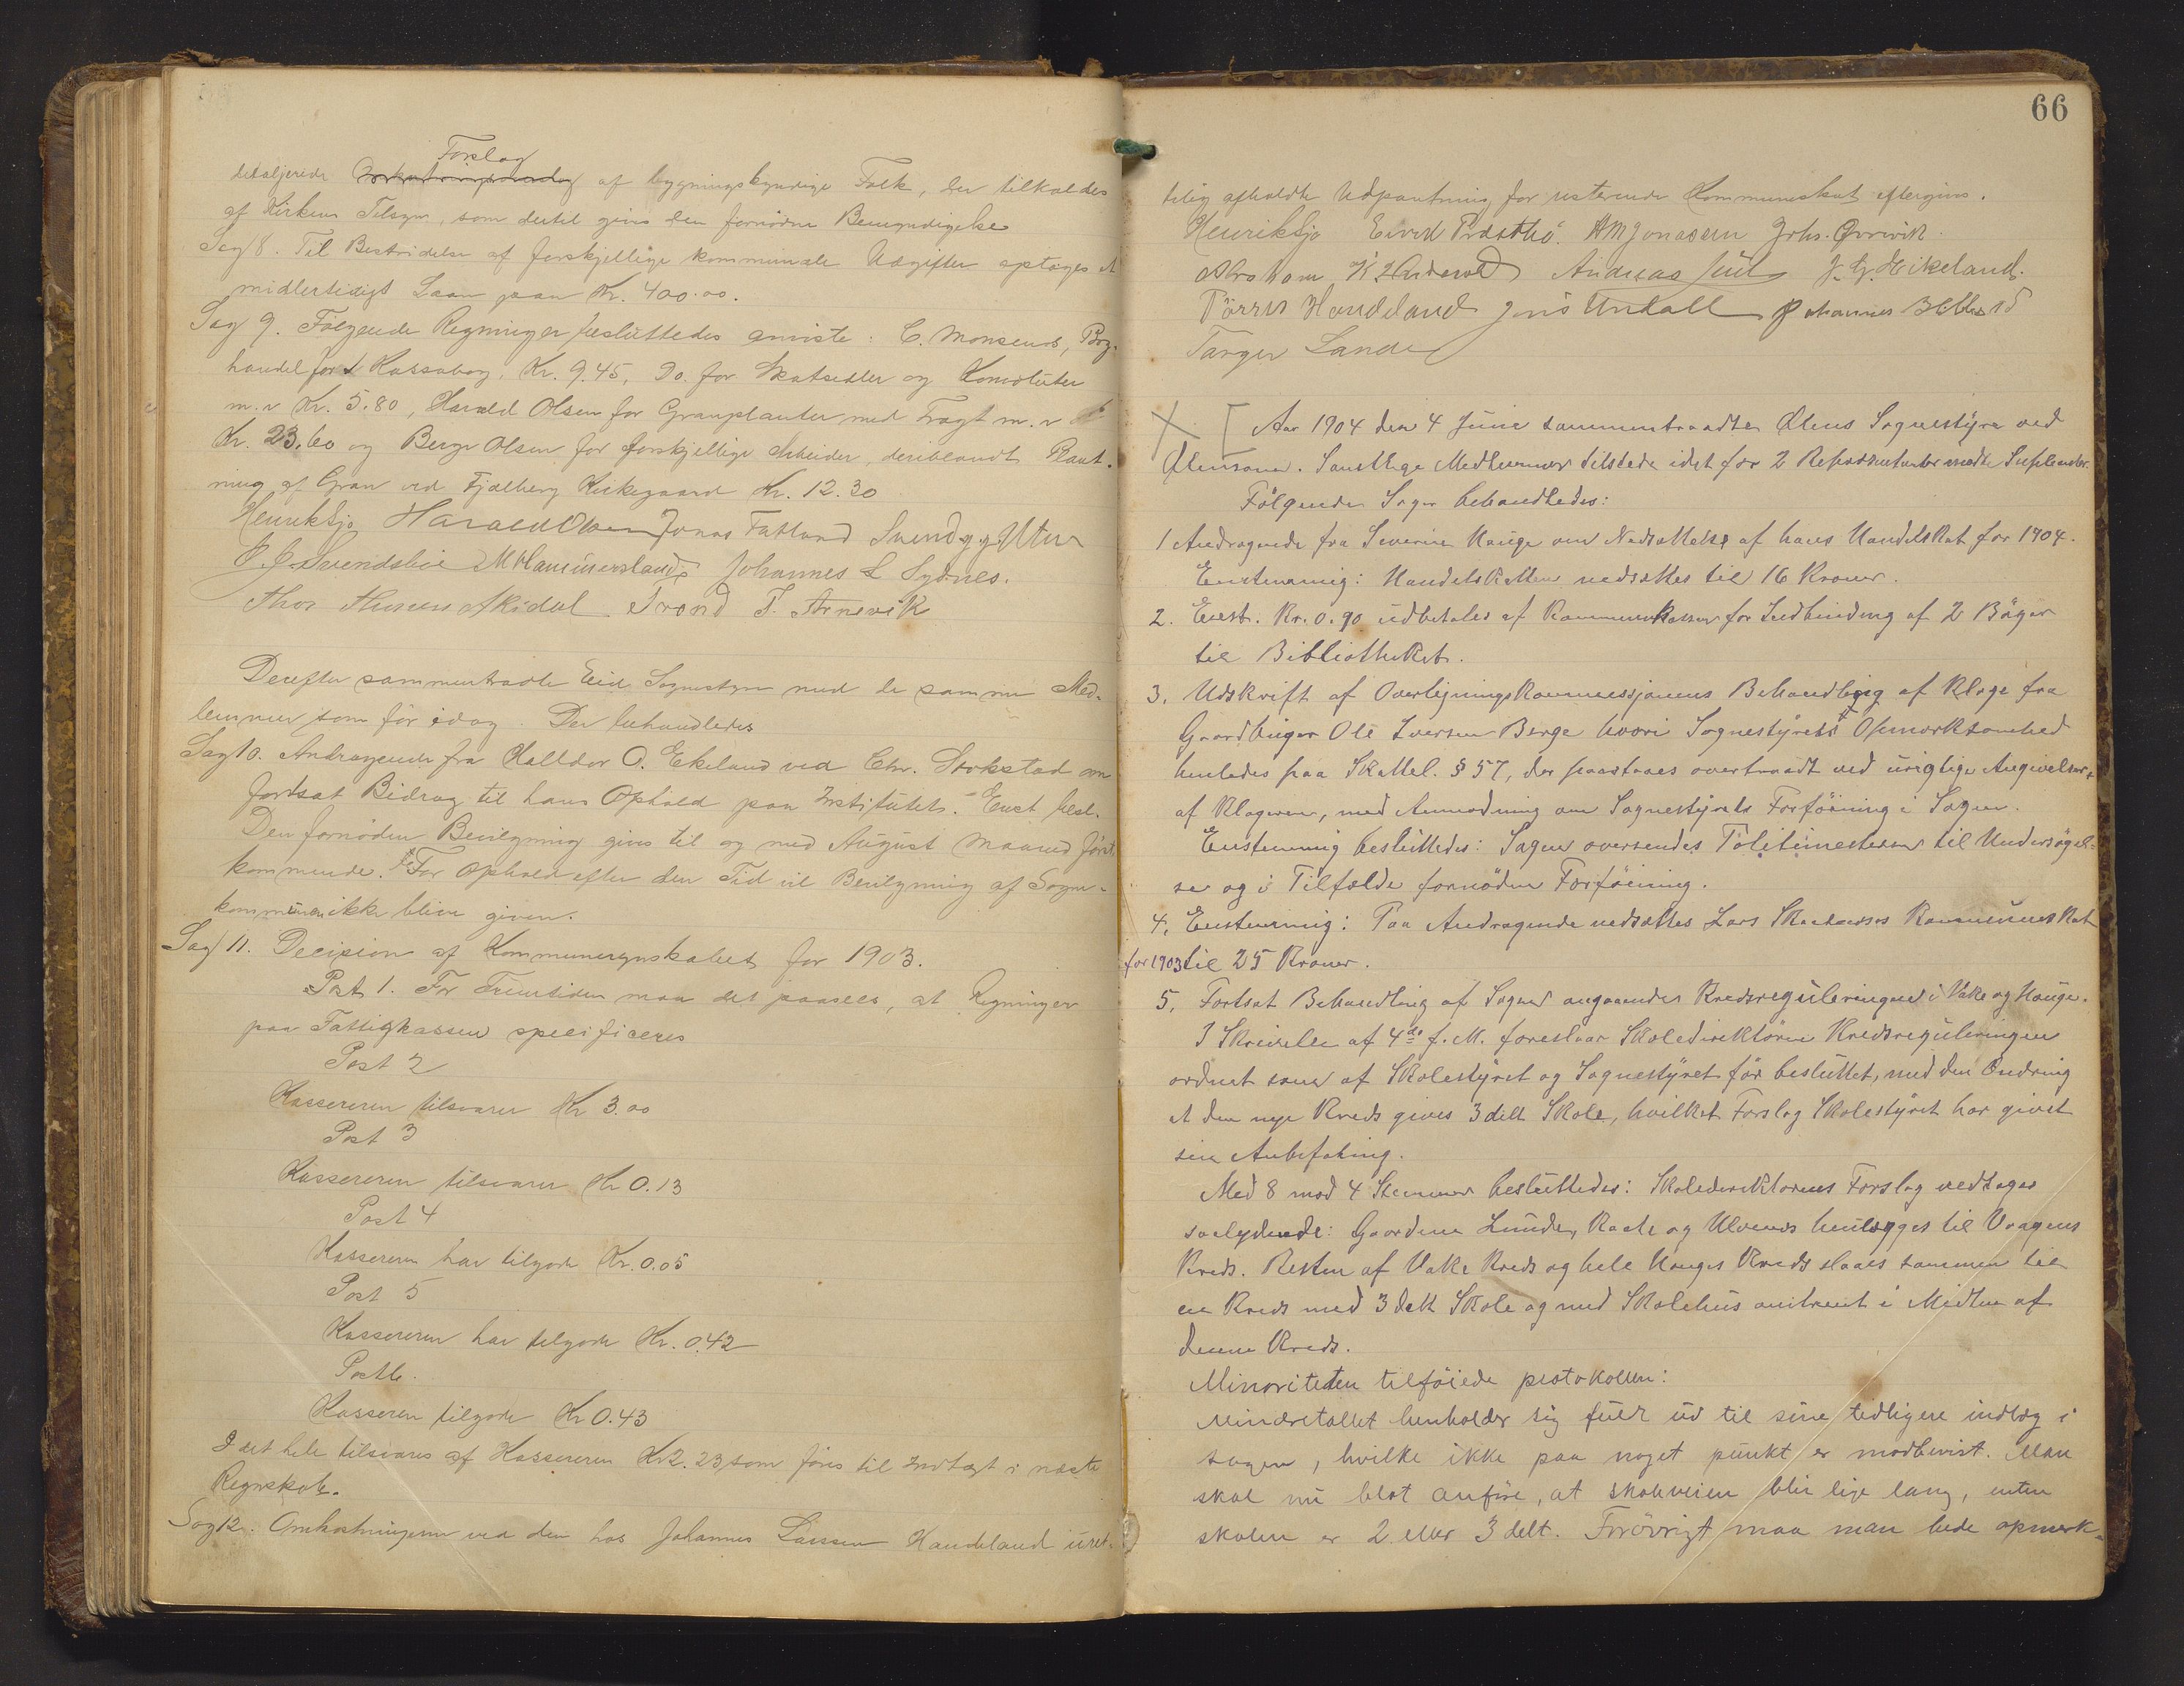 Forslag
detaljerede Omkostningsoverslag af bygningskyndige Folk, der tilkaldes
af Kirkens Tilsyn, som dertil gives den fornødne Bemyndigelse
Sag 8. Til Bestridelse af forskjellige kommunale Udgifter optages et
midlertidigt Laan paa Kr. 400.00.
Sag 9. Følgende Regninger besluttedes anviste: C. Monsens, Bog-
handel for 1 Kassabog, Kr. 9.45, Do. for Skatsedler og Konvoluter
m.v Kr. 5.80, Harald Olsen for Granplanter med Fragt m.v
Kr. 23.60 og Berge Olsen for forskjellige Arbeider, deriblandt Plant-
ning af Gran ved Fjelberg Kirkegaard Kr. 12.30
Henrik Sjo Harald Olsen Jonas Fatland Svend
J. J. Svendsbøe M Hammersland Johannes L Sydnes.
Thor Thorsen Skidal Trond T. Arnevik
Derefter sammentraadte Eid Sognestyre med de samme Med-
lemmer som før idag. Der behandledes
Sag 10. Andragende fra Halldor O. Ekeland ved Chr. Stokstad om
fortsat Bidrag til hans Ophold paa Institutet. Enst. besl.
Den fornødne Bevilgning gives til og med August Maaned først-
kommende. For Ophold efter den Tid vil Bevilgning af Sogne-
kommunen ikke blive given.
Sag 11. Decision af Kommuneregnskabet for 1903.
Post 1. For Fremtiden maa det paasees, at Regninger
paa Fattigkassen specificeres
Post 2
Kassereren tilsvarer Kr 3.00
Post 3
Kassereren tilsvarer Kr 0.13
Post 4
Kassereren har tilgode Kr. 0.05
Post 5
Kassereren har tilgode Kr. 0.42
Post 6.
Kasseren tilgode Kr 0.43
I det hele tilsvares af Kassereren Kr 2.23, som føres til Indtægt i næste
Regnskab.
Sag 12. Omkostningerne ved den hos Johannes Larsen Handeland uret-
66
telig afholdte Udpantning for resterende Kommuneskat eftergives.
Henrik Sjo Eivind Præsthö. AM Jonassen Johs. Qvrivik
Abraham Andreas Juul J. G. Hikeland.
Tørres Handeland Jens Undall Johannes
Torger Lande
Aar 1904 den 4 Juni sammentraadte Ølens Sognestyre ved
Ølensøen. Samtlige Medlemmer tilstede idet for 2 Repræsentanter mødte Supleanter.
Følgende Sager behandledes:
1 Andragende fra Severin Hauge om Nedsættelse af hans Handelskat for 1904.
Enstemmig: Handelskatten nedsættes til 16 Kroner.
2. Enst. Kr. 0.90 udbetales af Kommunekassen for Indbinding af 2 Bøger
til Bibliotheket.
3. Udskrift af Overligningskommissjonens Behandling af Klage fra
Gaardbruger Ole Iversen Berge hvori Sognestyrets Opmerksomhed
henledes paa Skattel. § 57, der paastaaes overtraadt ved urigtige Angivelser
af Klageren, med Anmodning om Sognestyrets Forføining i Sagen.
Enstemmig besluttedes: Sagen oversendes Politimesteren til Undersøgel-
se og i Tilfælde fornøden Forføining.
4. Enstemmig: Paa Andragende nedsættes Lars Kommuneskat
for 1903 til 25 Kroner.
5. Fortsat Behandling af Sagen angaaende Kredsreguleringen i Vake og Hauge.
I Skrivelse af 4de f. M. foreslaar Skoledirektøren Kredsreguleringen
ordnet som af Skolestyret og Sognestyret før besluttet, med den Endring
at den nye Kreds gives 3 delt Skole, hvilket Forslag Skolestyret har givet
sin Anbefaling.
Med 8 mod 4 Stemmer besluttedes: Skoledirektørens Forslag vedtages
saalydende: Gaardene Lunde, Kaate og Ulvenes henlægges til Vaagens
Kreds. Resten af Vake Kreds og hele Hauges Kreds slaaes sammen til
en Kreds med 3 delt Skole og med Skolehus omtrent i Midten af
denne Kreds.
Minoriteten tilføiede protokollen:
Mindretallet henholder sig fuldt ud til sine tidligere indlæg i
sagen, hvilke ikke paa noget punkt er modbevist. Man
skal nu blot anføre, at skoleveien blir lige lang, enten
skolen er 2 eller 3 delt. Forøvrigt maa man bede opmerk-